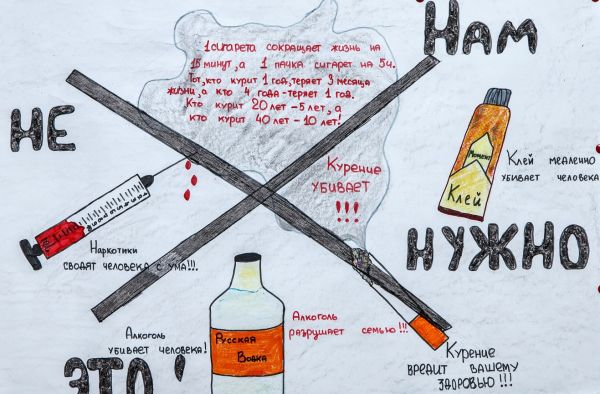 Нам
1 сигарета сокращает жизнь на
15 минут, а 1 пачка сигарет на 5ч.
Тот, кто курит 1 год, теряет 3 месяца
жизни, а кто 4 года - теряет 1 год.
Кто курит 20 лет - 5 лет, а
кто курит 40 лет - 10 лет!
НЕ
Курение
убивает
!!!
Момент
Клей
Клей медленно
убивает человека
НУЖНО
Наркотики
сводят человека с ума!!!.
Алкоголь
убивает человека!
Русская
Водка
Алкоголь
разрушает семью!!!
Курение
вредит вашему
здоровью!!!
ЭТО!